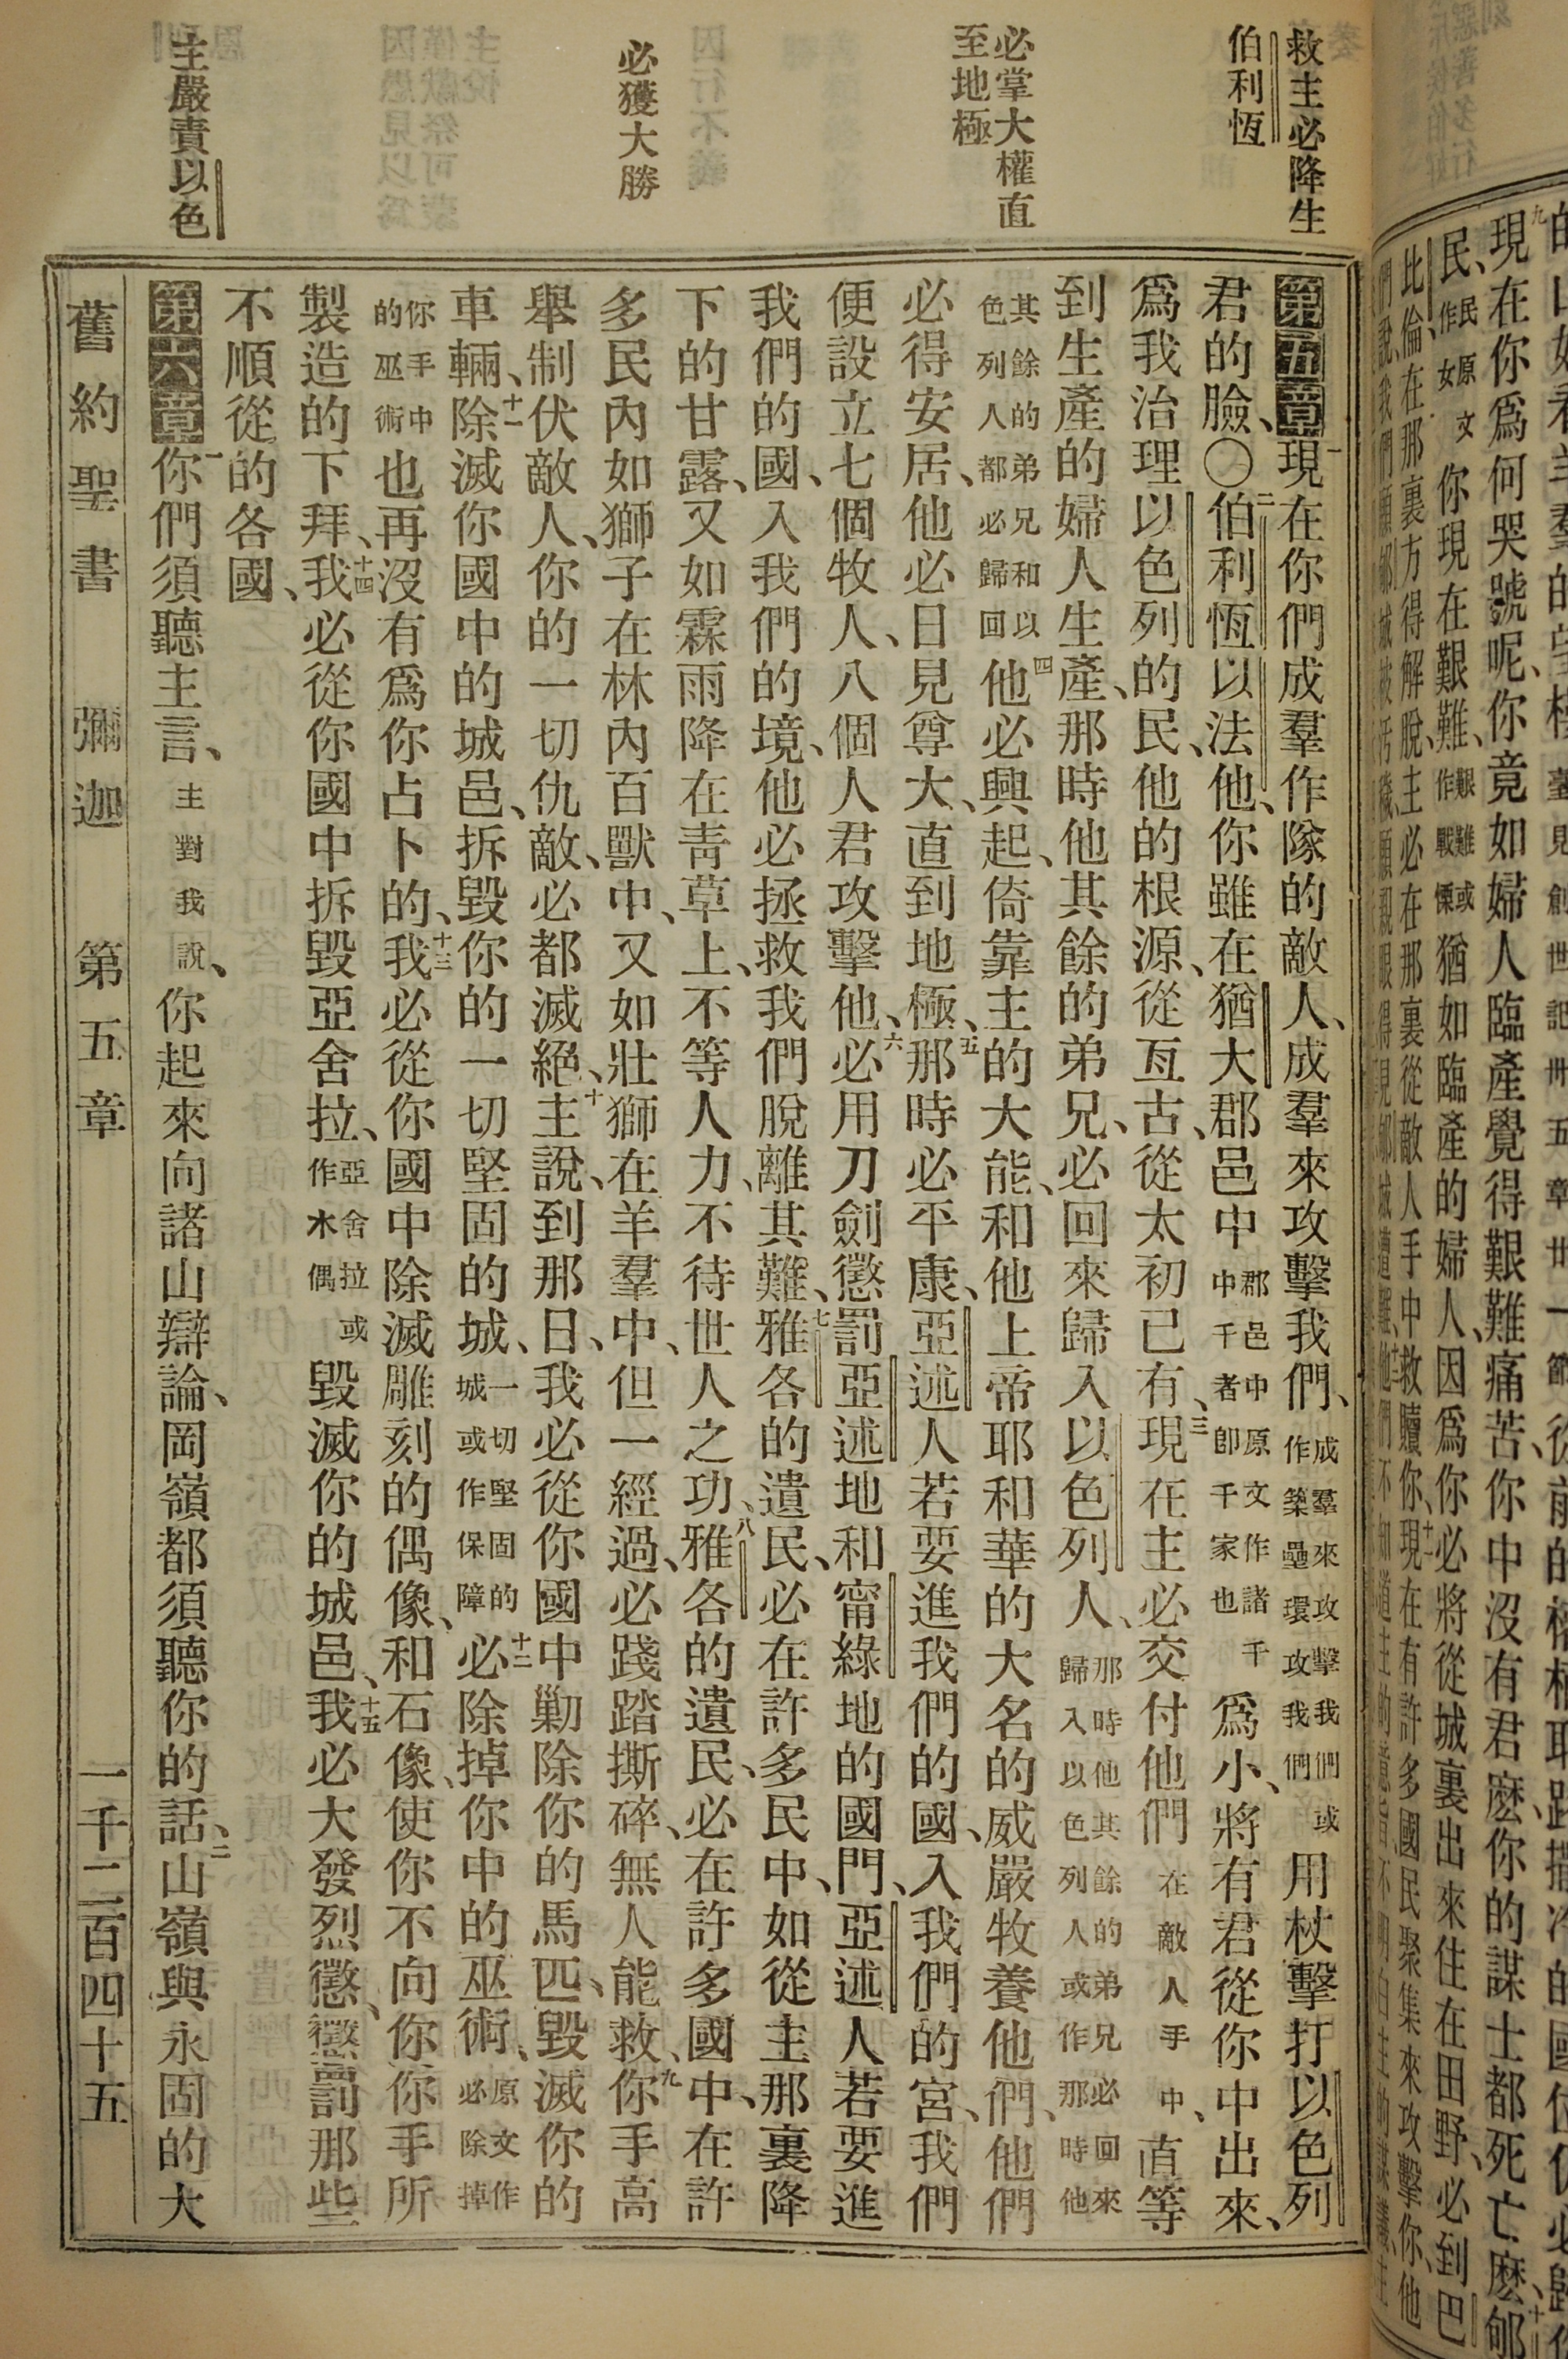 九現在你爲何哭號呢、你竟如婦人臨產覺得艱難痛苦、你中沒有君麽、你的謀士都死亡麽、十郇
民、民原文作女你現在艱難、艱難或作戰慄猶如臨產的婦人、因爲你必將從城裏出來住在田野、必到巴
比倫、在那裏方得解脫、主必在那裏從敵人手中救贖你、十一現在有許多國民聚集來攻擊你、他
們說、我們願郇城被污穢、願親眼得見郇城遭難、十二他們不知道主的意旨、不明白主的謀議、主
救主必降生
伯利恆
必掌大權直
至地極
必獲大勝
主嚴責以色
第五章一現在你們成羣作隊的敵人、成羣來攻擊我們、成羣來攻擊我們或作築壘環攻我們用杖擊打以色列
君的臉、〇二伯利恆以法他、你雖在猶大郡邑中郡邑中原文作諸千中千者卽千家也爲小、將有君從你中出來、
爲我治理以色列的民、他的根源、從亙古、從太初已有、三現在主必交付他們在敵人手中、直等
到生產的婦人生產、那時他其餘的弟兄、必回來歸入以色列人、那時他其餘的弟兄必回來歸入以色列人或作那時他
其餘的弟兄和以色列人都必歸回四他必興起、倚靠主的大能、和他上帝耶和華的大名的威嚴牧養他們、他們
必得安居、他必日見尊大、直到地極、五那時必平康、亞述人若要進我們的國、入我們的宮、我們
便設立七個牧人、八個人君攻擊他、六必用刀劍懲罰亞述地和甯綠地的國門、亞述人若要進
我們的國、入我們的境、他必拯救我們脫離其難、七雅各的遺民、必在許多民中、如從主那裏降
下的甘露、又如霖雨降在靑草上、不等人力、不待世人之功、八雅各的遺民、必在許多國中、在許
多民內如獅子在林內百獸中、又如壯獅在羊羣中、但一經過、必踐踏撕碎、無人能救、九你手高
舉制伏敵人、你的一切仇敵、必都滅絕、十主說、到那日、我必從你國中勦除你的馬匹、毀滅你的
車輛、十一除滅你國中的城邑、拆毀你的一切堅固的城、一切堅固的城或作保障十二必除掉你中的巫術、原文作必除掉
你手中的巫術也再沒有爲你占卜的、十三我必從你國中除滅雕刻的偶像、和石像、使你不向你手所
製造的下拜、十四我必從你國中拆毀亞舍拉、亞舍拉或作木偶毀滅你的城邑、十五我必大發烈懲、懲罰那些
不順從的各國、
第六章一你們須聽主言、主對我說、你起來向諸山辯論、岡嶺都須聽你的話、二山嶺與永固的大
舊約聖書 彌迦 第五章 一千二百四十五